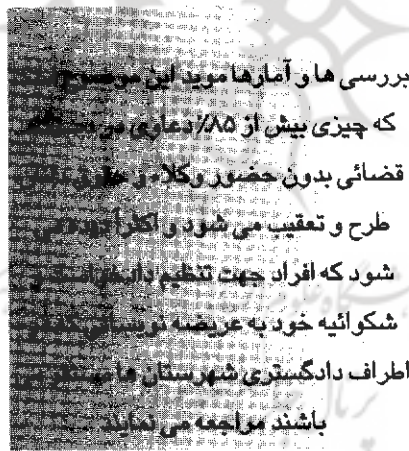 بررسی ها و آمارها موید این موضوع
که چیزی بیش از ۸۵٪ دعاوی در
قضائی بدون حضور وکلاء و حقوق
طرح و تعقیب می شود و اکثرا دیده می
شود که افراد جهت تنظیم دادخواست و
شکوائیه خود به عریضه نویسانی که در
اطراف دادگستری شهرستان ها می
باشند مراجعه می نمایند